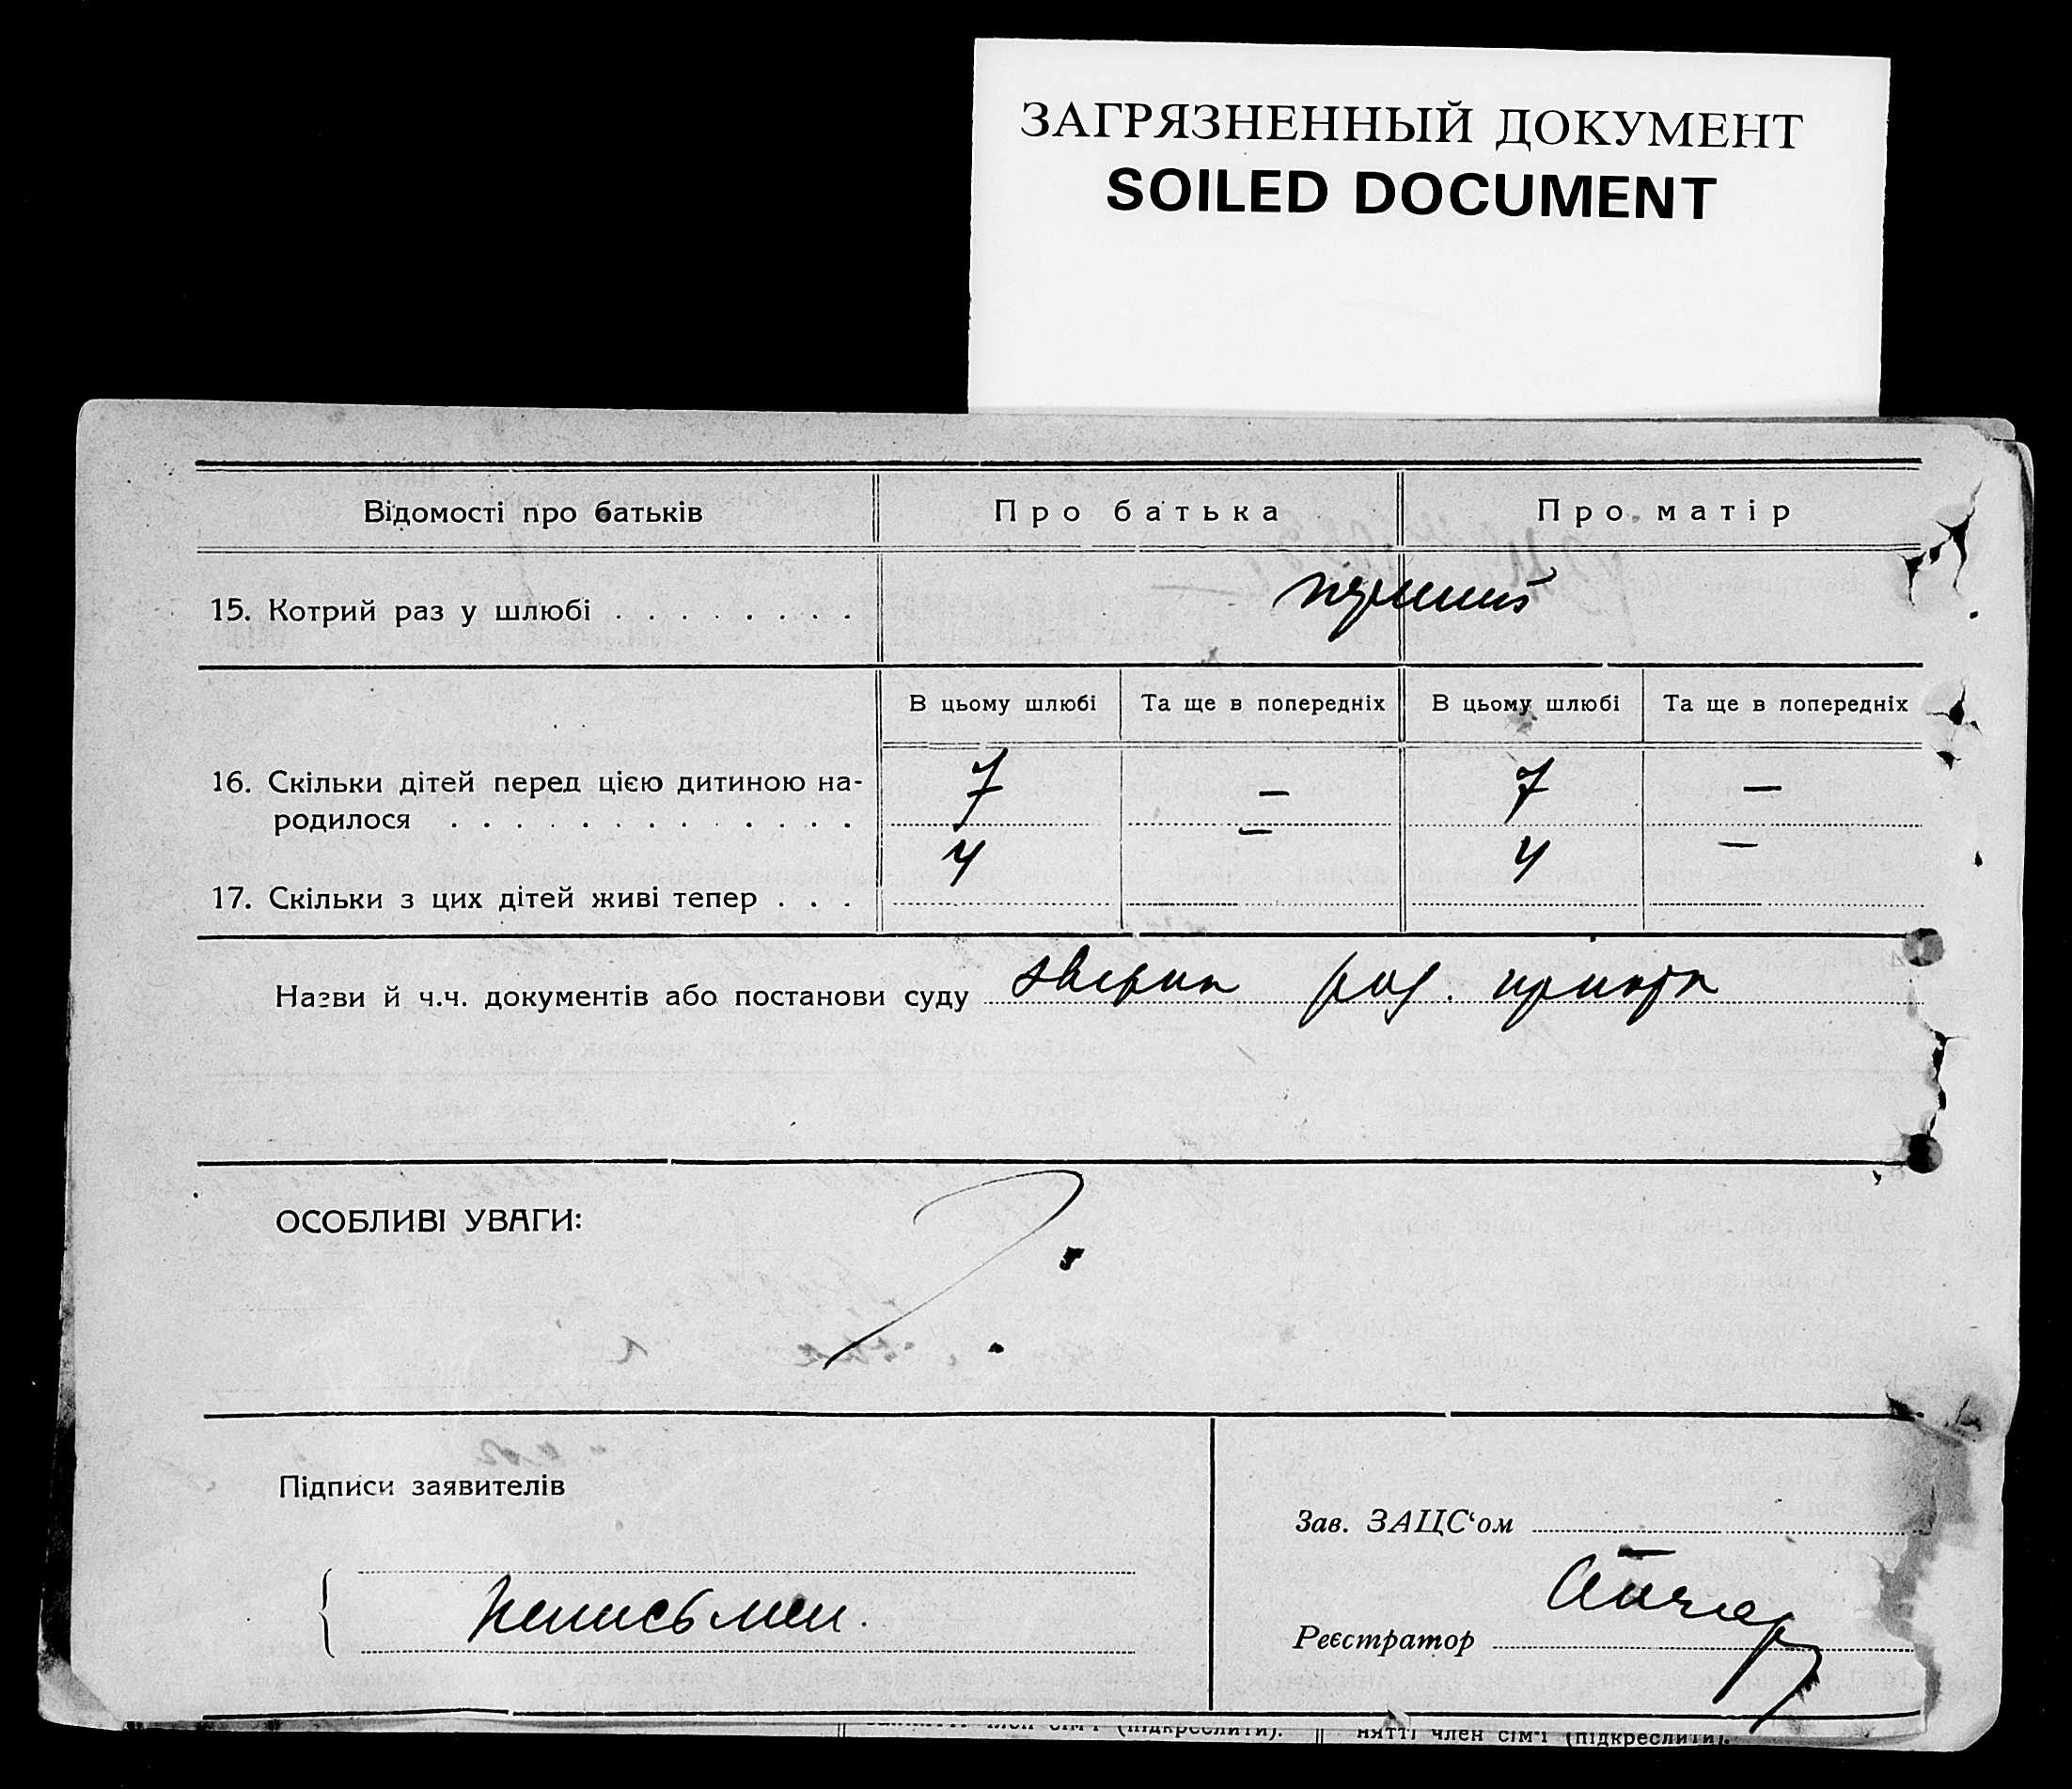 ЗАГРЯЗНЕННЫЙ ДОКУМЕНТ
SOILED DOCUMENT
Відомості про батьків
Про батька
Про матір
15. Котрий раз у шлюбі
перший
В цьому шлюбі
Та ще в попередніх
В цьому шлюбі
Та ще в попередніх
16. Скільки дітей перед цією дитиною на-
родилося
7 — 7 —
17. Скільки з цих дітей живі тепер
4 — 4 —
Назви й ч.ч. документів або постанови суду
ОСОБЛИВІ УВАГИ:
Підписи заявителів
Зав. ЗАЦС‘ом
неписьмен.
Реєстратор
член сім‘ї (підкреслити).
нятті член сім‘ї (підкреслити).